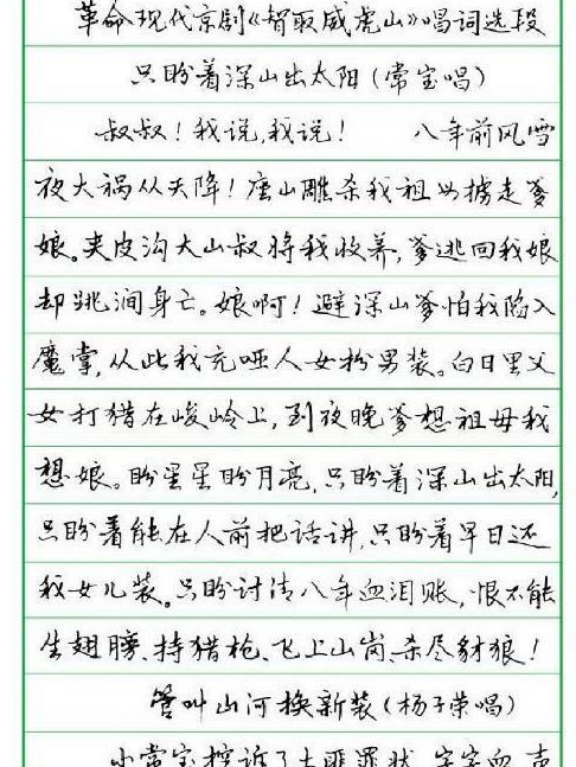 革命现代京剧《智取威虎山》唱词选段
只盼着深山出太阳(常宝唱)
叔叔!我说,我说! 八年前风雪
夜大祸从天降!座山雕杀我祖母掳走爹
娘。夹皮沟大山叔将我收养,爹逃回我娘
却跳涧身亡。娘啊!避深山爹怕我陷入
魔掌,从此我充哑人女扮男装。白日里父
女打猎在峻岭上,到夜晚爹想祖母我
想娘。盼星星盼月亮,只盼着深山出太阳,
只盼着能在人前把话讲,只盼着早日还
我女儿装。只盼讨清八年血泪账,恨不能
生翅膀、持猎枪、飞上山岗、杀尽豺狼!
管叫山河换新装(杨子荣唱)
小常宝控诉了土匪罪状,字字血,声